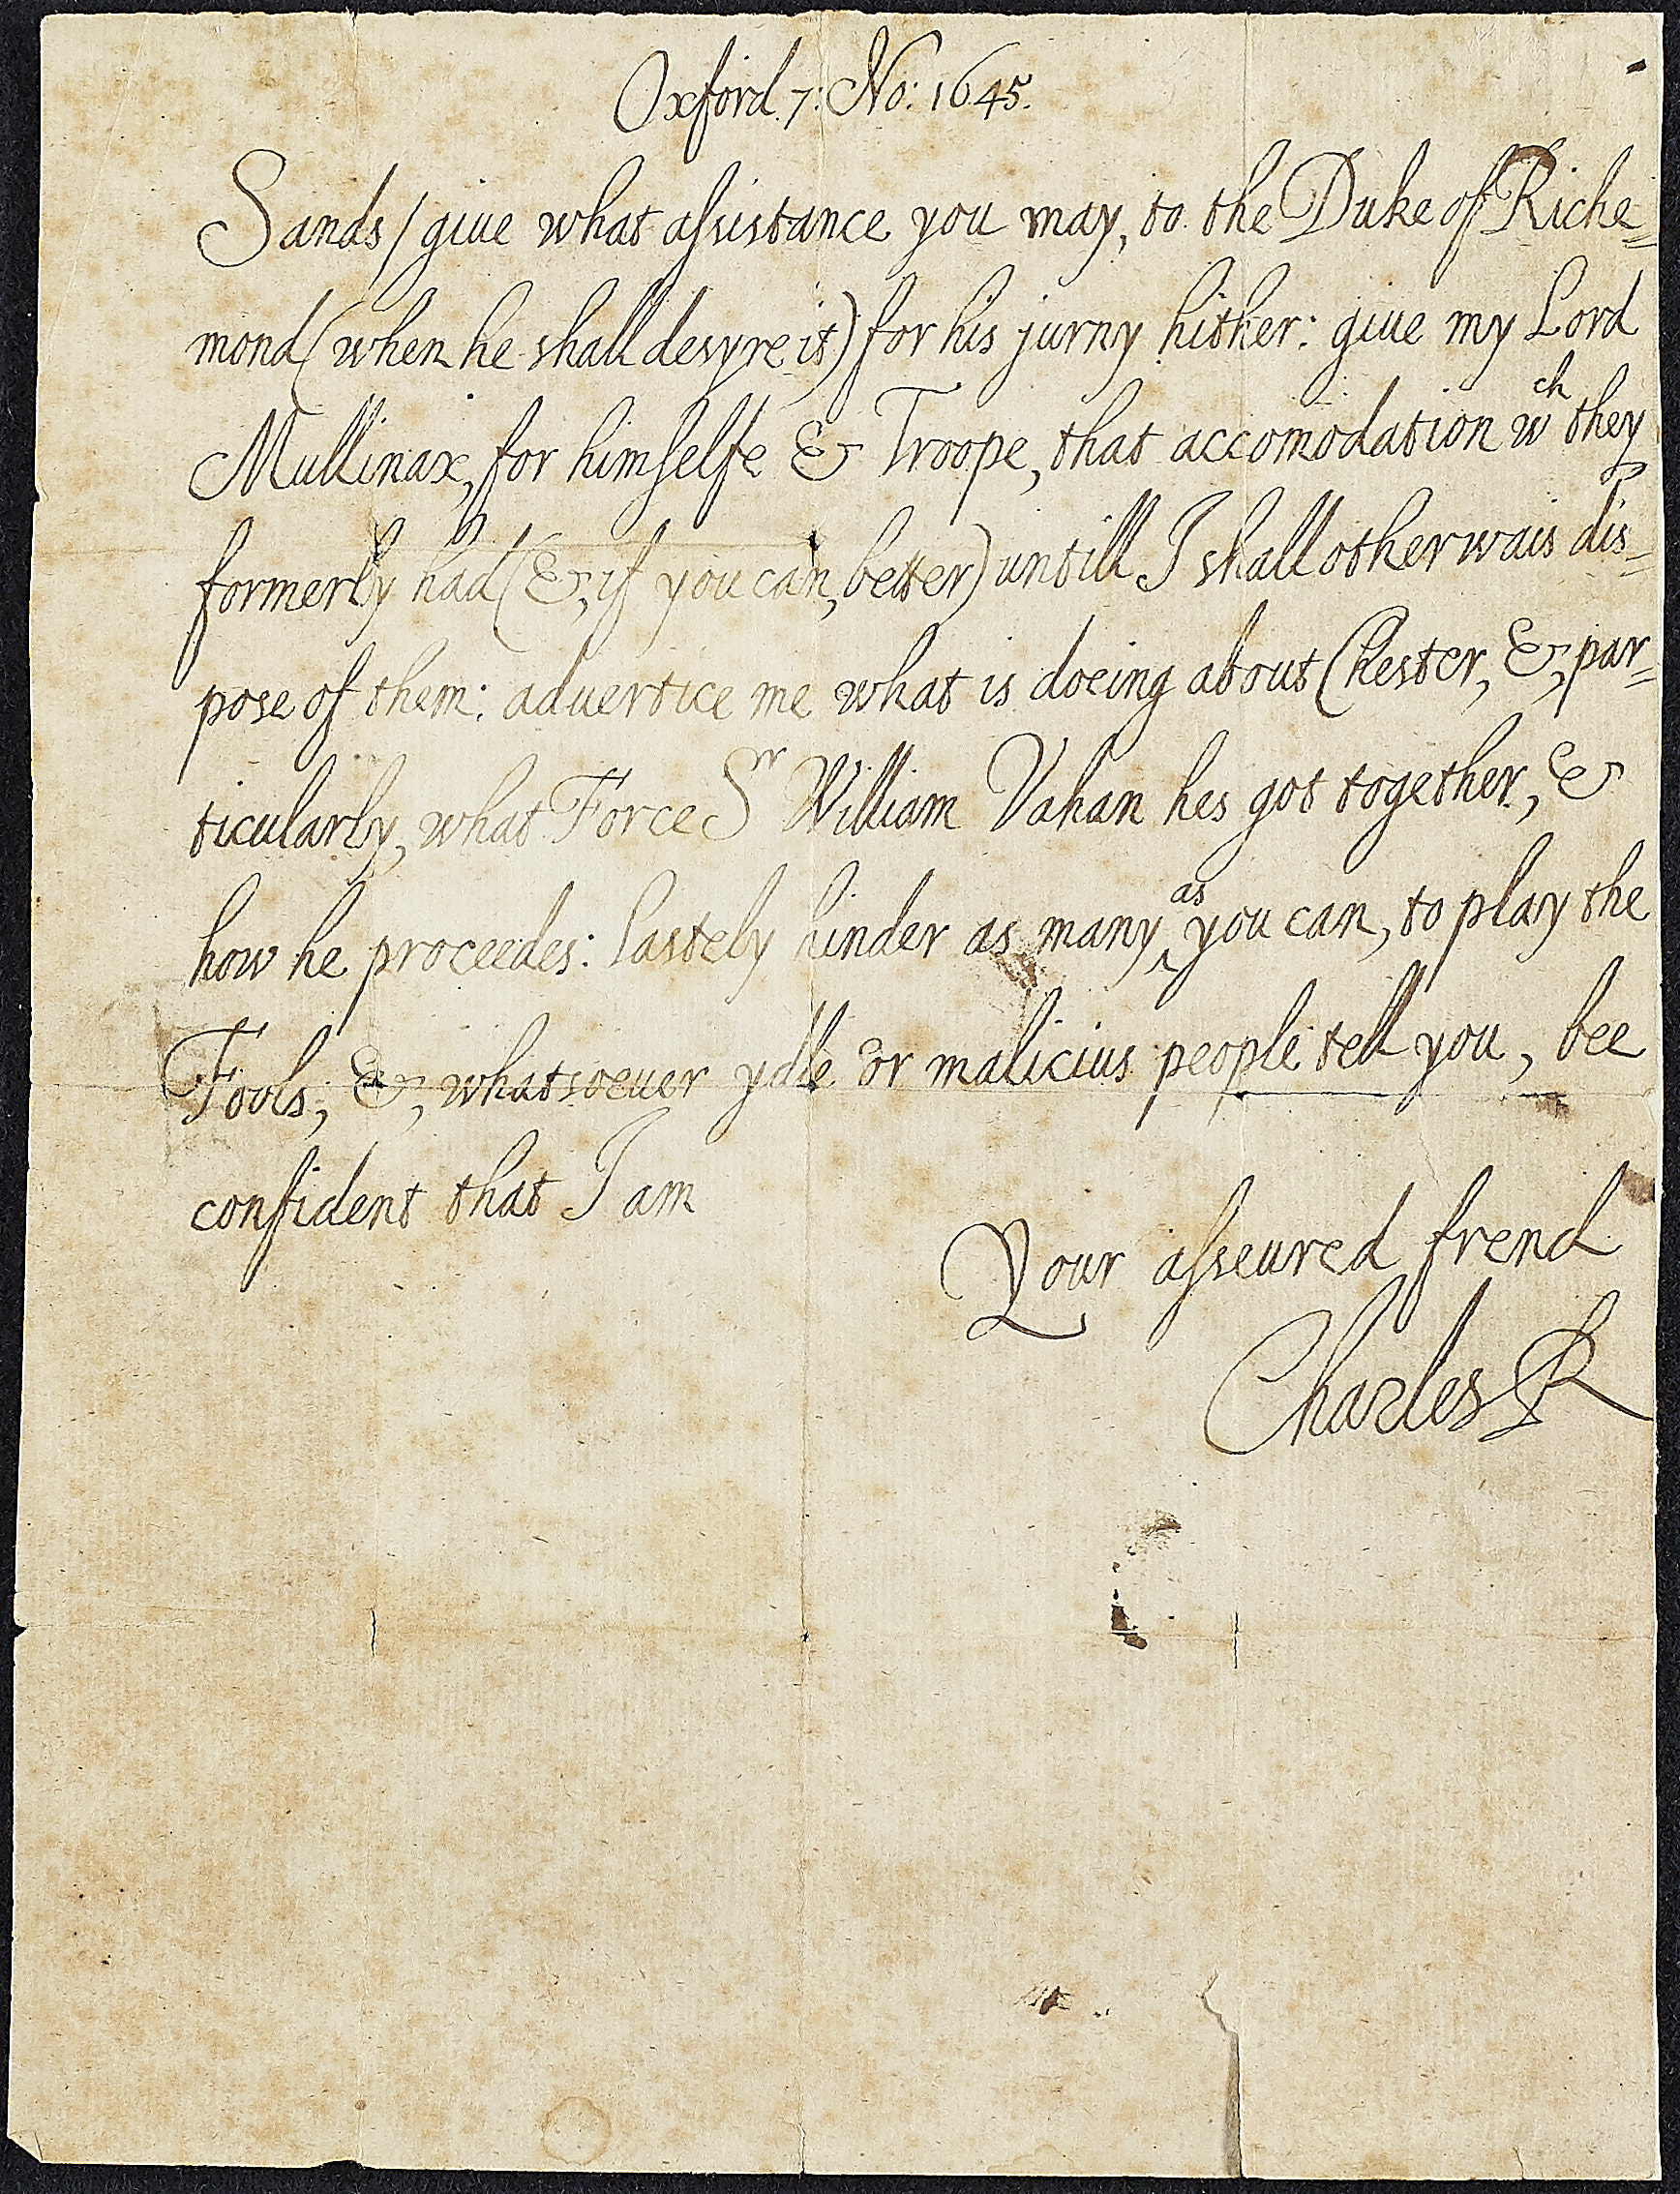 Oxford. 7: No: 1645.
Sands / giue what assistance you may, to the Duke of Riche=
mond (when he shall desyre it) for his jurny hither: giue my Lord
Mullinax, for himselfe & Troope, that accomodation wch they
formerly had (&, if you can, better) untill I shall otherwais dis=
pose of them: aduertice me what is doeing about Chester, &, par=
ticularly, what Force Sr William Vahan hes got together, &
how he proceedes: lastely hinder as many as you can, to play the
Fools; &, whatsoeuer ydle or malicius people tell you, bee
confident that I am
Your asseured frend
Charles R